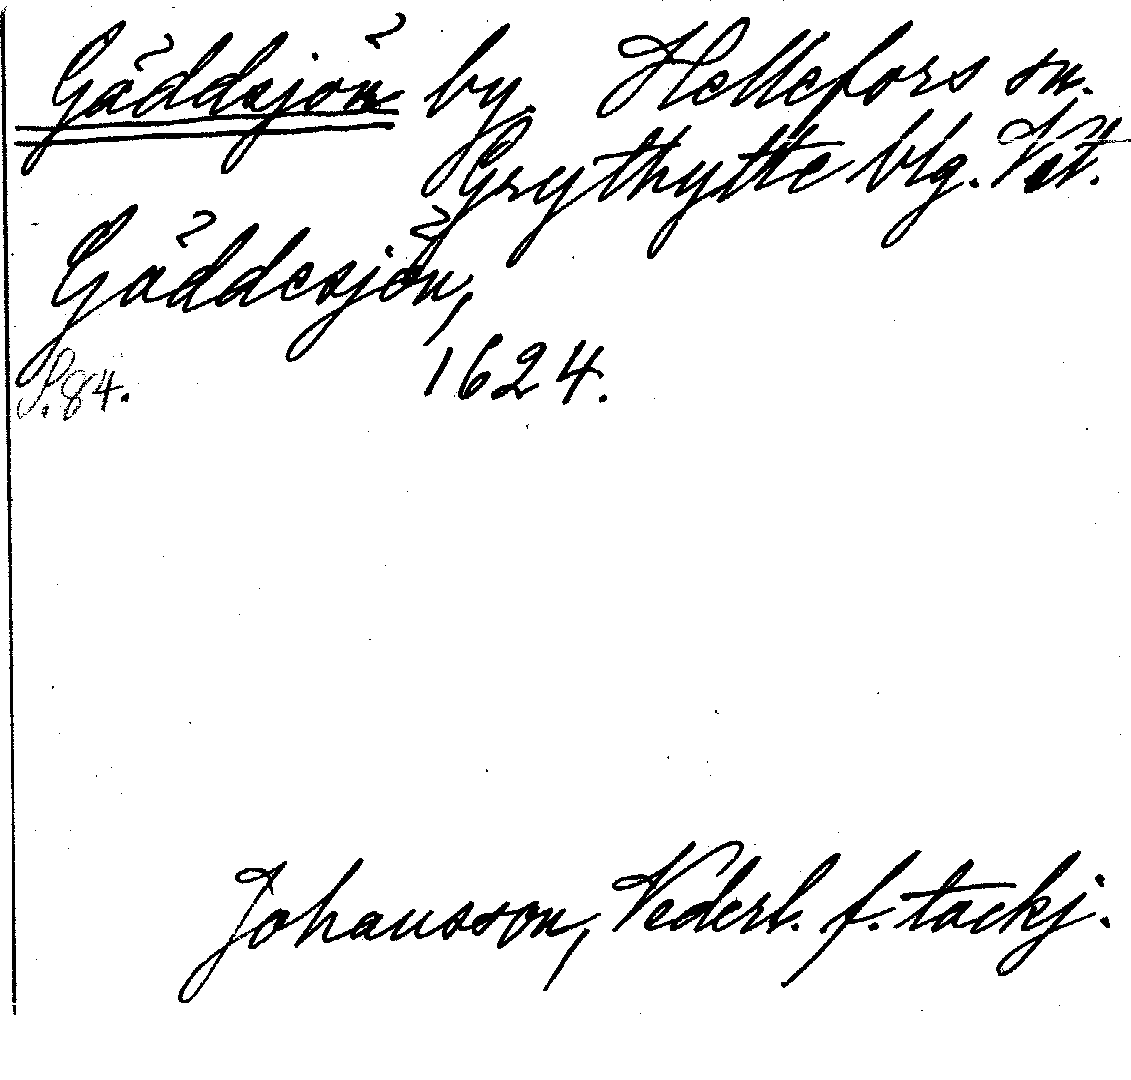 Gäddsjön by, Hellefors sn.
Grythytte blg. Vst.
Gäddesjön,
1624.
S. 84.
Johansson, Vederl. f. tackj.